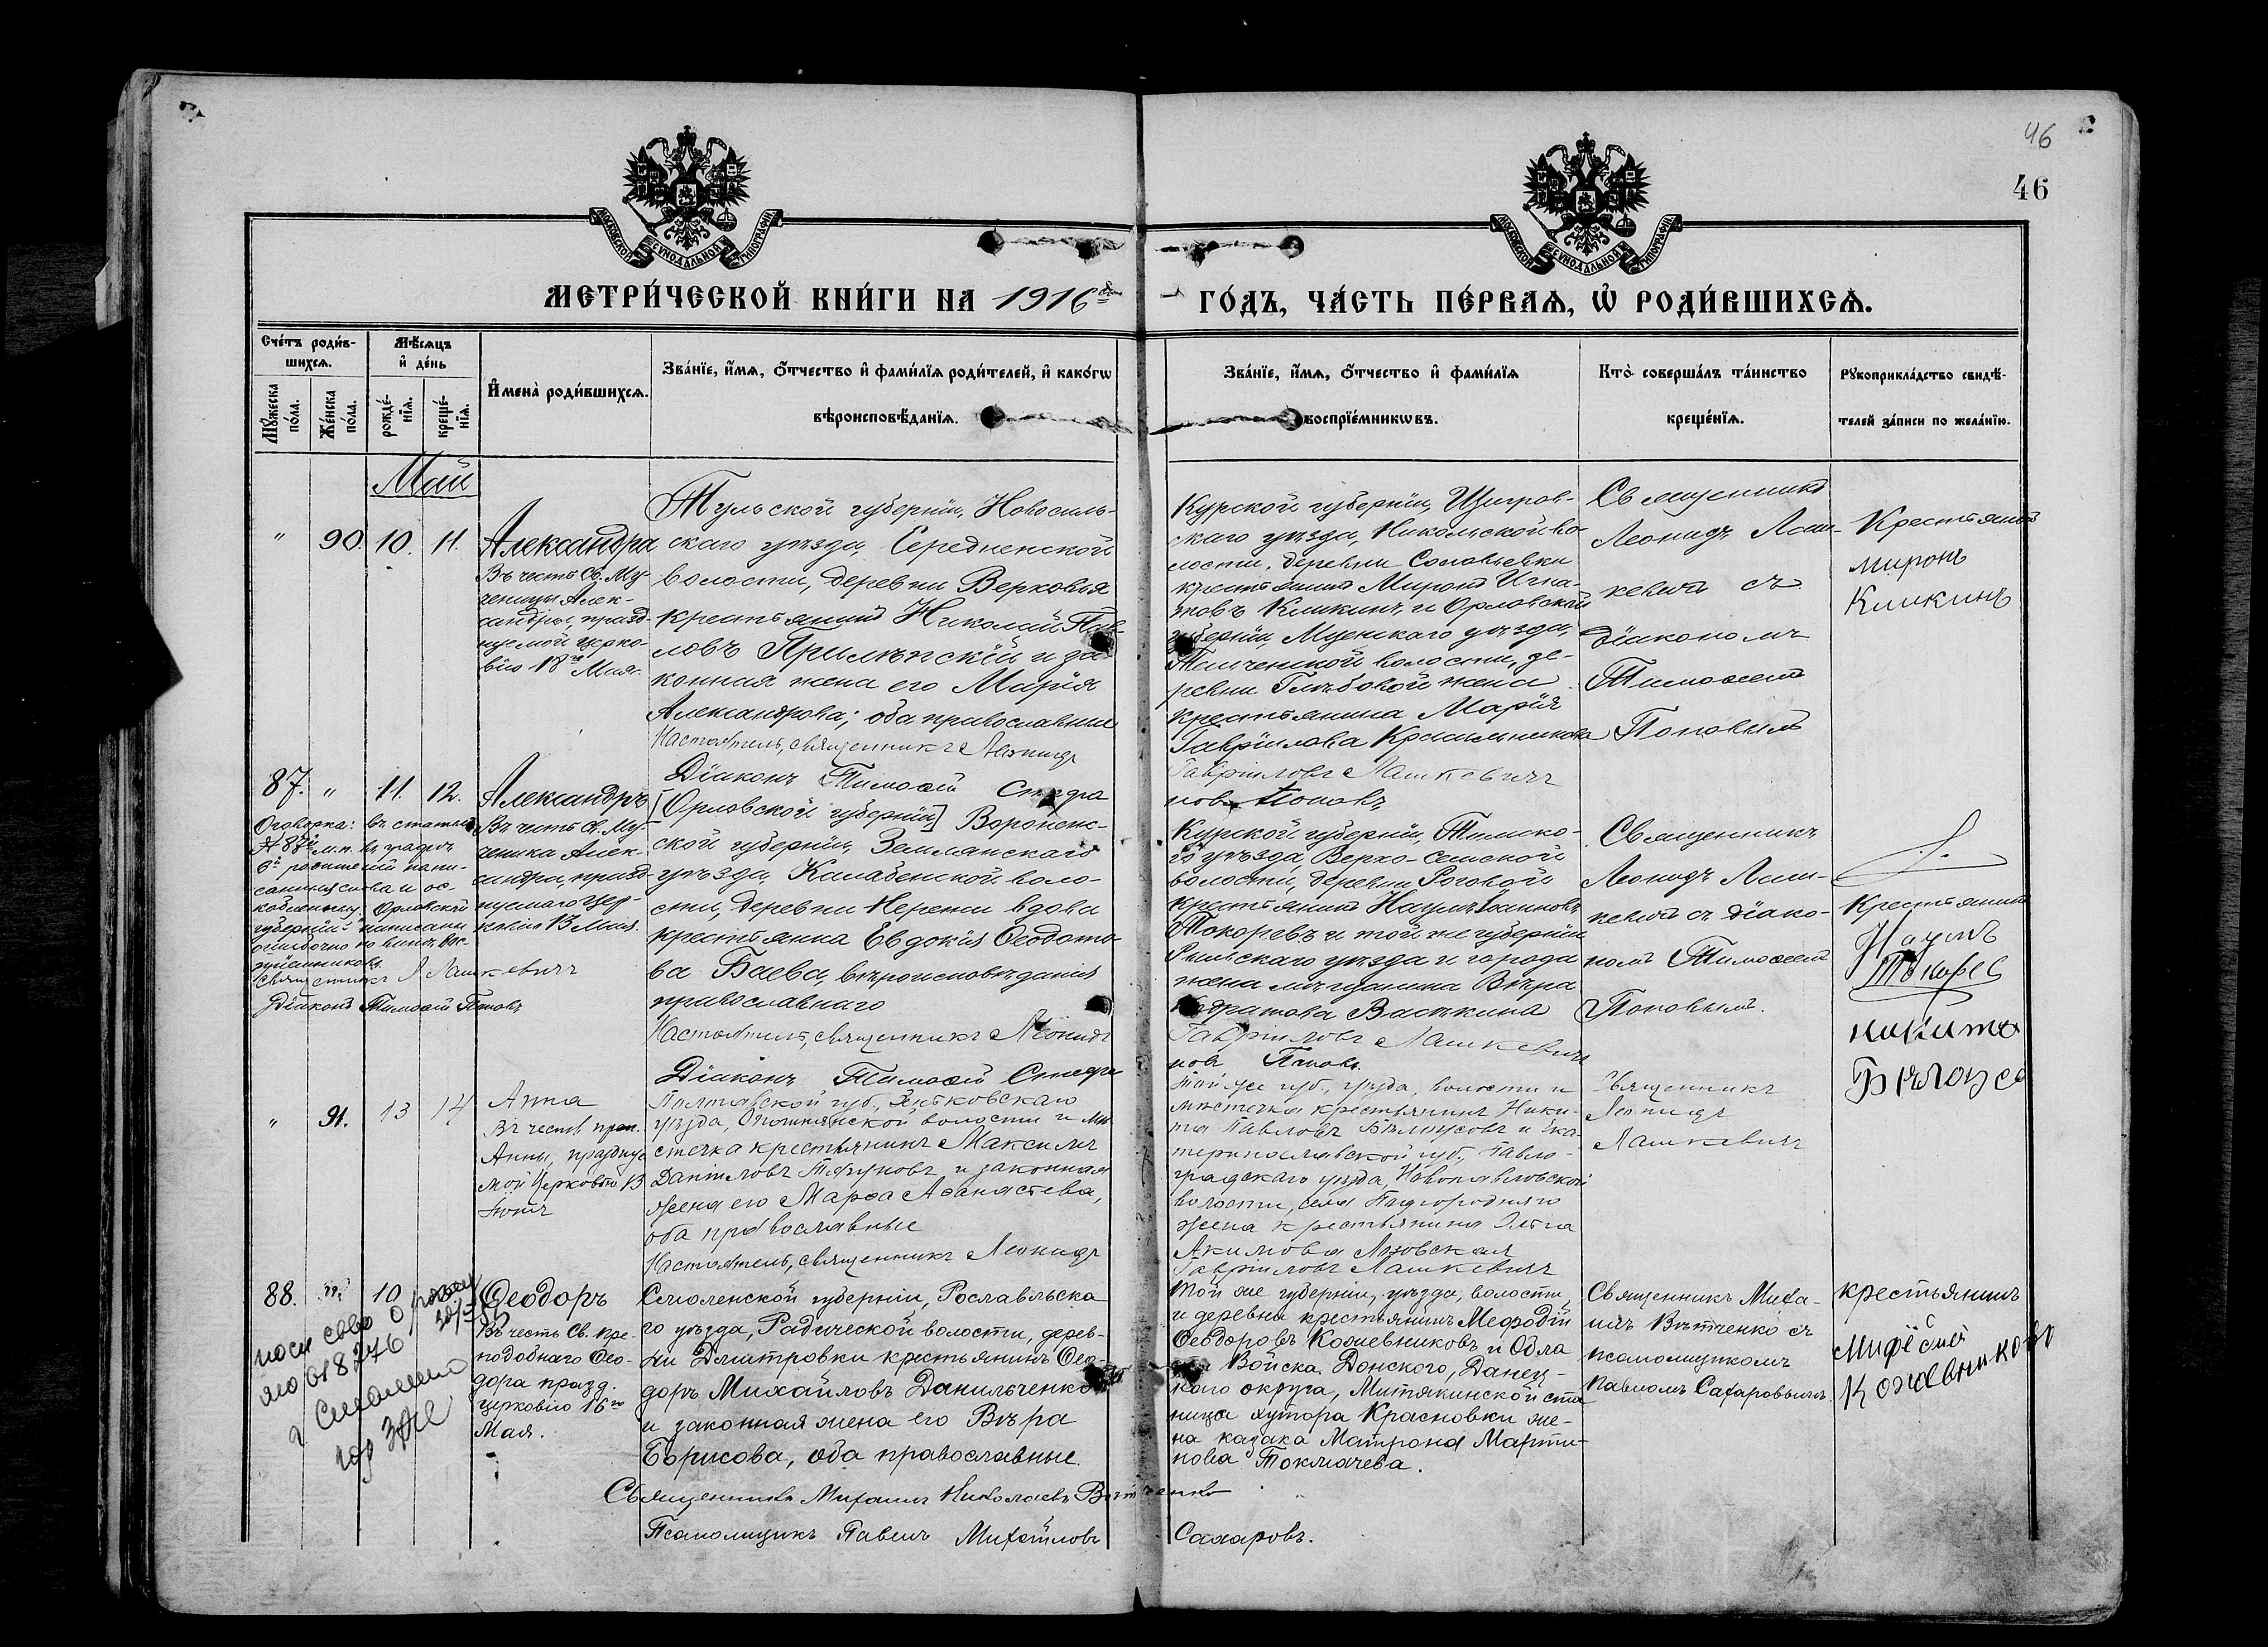 46
46
МОСКОВСКОЙ СУНОДАЛЬНОЙ ТИПОГРАФІИ
МОСКОВСКОЙ СУНОДАЛЬНОЙ ТИПОГРАФІИ
МЕТРИ́ЧЕСКОЙ КНИ́ГИ НА 1916й
ГО́ДЪ, ЧА́СТЬ ПЕ́РВАѦ, Ѡ҆ РОДИ́ВШИХСѦ.
Сче́тъ роди́в-
шихсѧ.
Мꙋ́жеска по́ла.
Же́нска по́ла.
Мѣ́сѧцъ
и҆ де́нь
рожде́-
нїѧ.
креще́-
нїѧ.
И҆мена̀ роди́вшихсѧ.
Зва́нїе, и҆́мѧ, ѻ҆́тчество и҆ фами́лїѧ роди́телей, и҆ како́гѡ
вѣроисповѣ́данїѧ.
Зва́нїе, и҆́мѧ, ѻ҆́тчество и҆ фами́лїѧ
воспрїе́мникѡвъ.
Кто̀ соверша́лъ та́инство
креще́нїѧ.
Рꙋкоприкла́дство свидѣ́-
телей за́писи по жела́нїю.
Май
" 90. 10. 11.
Александра
Въ честь Св. Му-
ченицы Алек-
сандры, празд-
нуемой церко-
вію 18го Мая.
Тульской губерніи, Новосиль-
скаго уѣзда, Середненской
волости, деревни Верховья
крестьянинъ Николай Пав-
ловъ Прилѣпскій и за-
конная жена его Марія
Александрова; оба православные
Настоятель, священникъ Леонидъ
Діаконъ Тимоѳей
Курской губерніи, Щигров-
скаго уѣзда, Никольской во-
лости, деревни
крестьянинъ Миронъ Игна-
товъ Кликинъ и Орловской
губерніи, Мценскаго уѣзда,
волости, де-
ревни Глѣбовой жена
крестьянина Марія
Гавріилова
Гавріиловъ Лашкевичъ
новъ Поповъ
Священникъ
Леонидъ Лаш-
кевичъ съ
діакономъ
Тимоѳеемъ
Поповымъ
Крестьянинъ
миронъ
Кликинъ
87. " 11. 12.
Оговорка: въ статьѣ
№ 87й м.п. въ графѣ
родителей напи-
санныя слова и ос-
Орловской
губерніи написаны
ошибочно
священникъ Л Лашкевичъ
Діаконъ Тимоѳей Поповъ
Александръ
Въ честь Св. Му-
ченика Алек-
сандра, празд-
нуемаго цер-
ковію 13 Мая.
[Орловской губерніи] Воронеж-
ской губерніи, Землянскаго
уѣзда, Казабенской воло-
сти, деревни вдова
крестьянка Евдокія Ѳеодото-
ва Баева, вѣроисповѣданія
православнаго
Настоятель, священникъ Леонидъ
Діаконъ Тимоѳей Стефа
Курской губерніи, Тимско-
го уѣзда, Верхо-Семской
волости, деревни Роговой
крестьянинъ Наумъ Іоанновъ
Токоревъ и той же губерніи
Рыльскаго уѣзда и города
жена мѣщанина Вѣра
Васькина
Гавріиловъ Лашкевичъ
новъ Поповъ.
Священникъ
Леонидъ Лаш-
кевичъ съ діако-
номъ Тимоѳеемъ
Поповымъ.
Крестьянинъ
Наумъ
Токорев
" 91. 13 14
Анна
Въ честь преп.
Анны, празднуе
мой Церковью 13
Іюня
Полтавской губ., Зѣньковскаго
уѣзда, Опошнянской волости и мѣ
стечка крестьянинъ Максимъ
Даниловъ и законная
жена его Марѳа Аѳанасіева,
оба православные
Настоятель, священникъ Леонидъ
той же губ., уѣзда, волости и
мѣстечка крестьянинъ Ники-
та Павловъ Бѣлоусовъ и Ека-
теринославской губ., Павло-
градскаго уѣзда, Новопавловской
волости, села Подгородняго
жена крестьянина Ольга
Акимова Лозовская
Гавріиловъ Лашкевичъ
Священникъ
Леонидъ
Лашкевичъ
никита
Бѣлоусо
88. " 10
Ѳеодоръ
Въ честь Св. Пре-
подобнаго Ѳео-
дора празд.
церковію 16го
Мая.
Смоленской губерніи, Рославльска
го уѣзда, Радической волости, дерев-
ни Дмитровки крестьянинъ Ѳео-
доръ Михайловъ Данильченко
и законная жена его Вѣра
Борисова, оба православные.
Священникъ Михаилъ Николаевъ Вѣтченко
Псаломщикъ Павелъ Михайловъ
Сахаровъ.
Той же губерніи, уѣзда, волости
и деревни крестьянинъ Меѳодій
Ѳеодоровъ Кожевниковъ и Обла
сти Войска Донского, Донец-
каго округа, Митякинской ста
ницы хутора Красновки же-
на казака Матрона Марти-
нова Токмачева.
Священникъ Миха-
илъ Вѣтченко съ
псаломщикомъ
Павломъ Сахаровымъ.
крестьянинъ
Мифёдий
Кожевниковъ